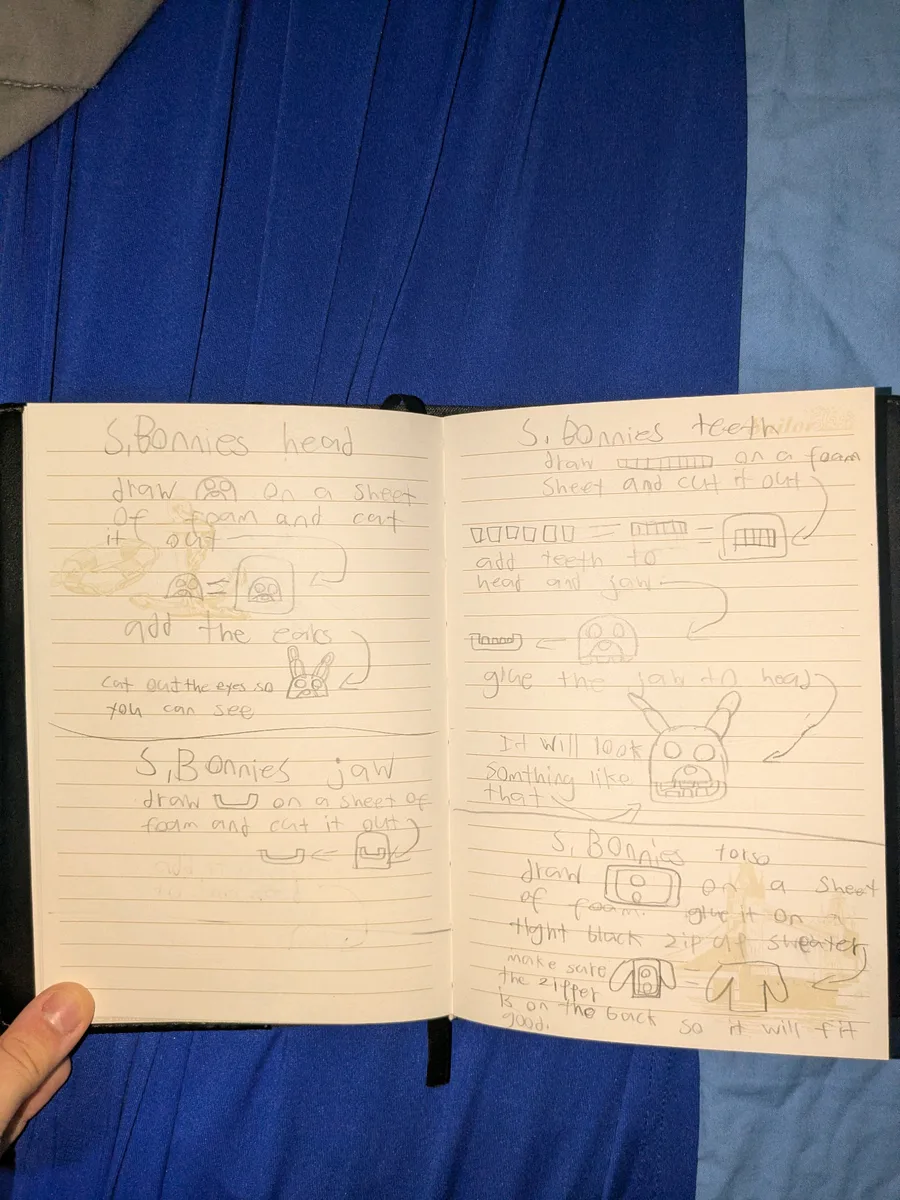 S,Bonnies head
draw on a sheet
of foam and cut
it out
=
add the ears
cut out the eyes so
you can see
S,Bonnies jaw
draw on a sheet of
foam and cut it out
S, Bonnies teeth
draw on a foam
sheet and cut it out
= =
add teeth to
head and jaw
glue the jaw to head
It will look
somthing like
that
S, Bonnies torso
draw on a sheet
of foam. glue it on a
tight black zip up sweater
make sure
the zipper =
is on the back so it will fit
good.